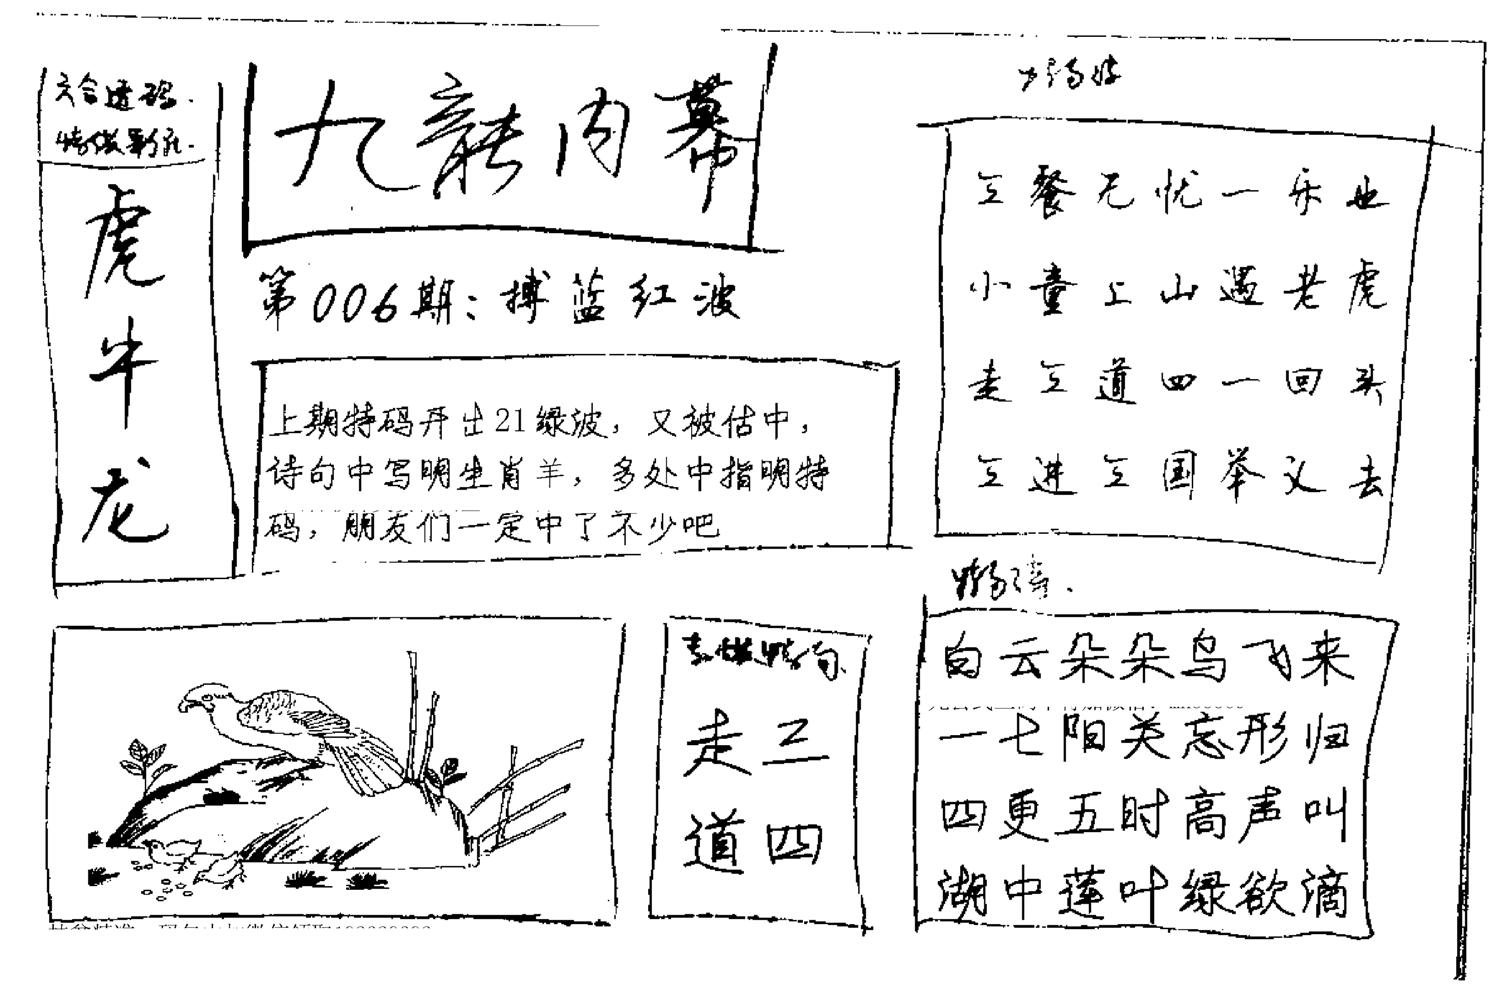 六合透码.
虎
牛
龙
九龍内幕
第006期：搏蓝红波
上期特码开出21绿波，又被估中，
诗句中写明生肖羊，多处中指明特
码，朋友们一定中了不少吧
三餐无忧一乐业
小童上山遇老虎
走三道四一回头
三进三国举义去
走三
道四
白云朵朵鸟飞来
一七阳关忘形归
四更五时高声叫
湖中莲叶绿欲滴